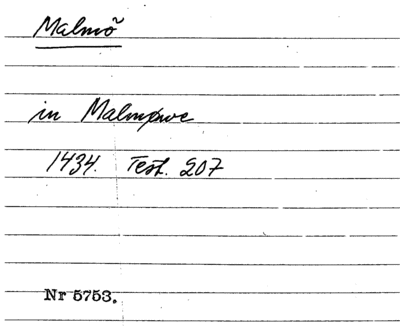 Malmö
in Malmøwe
1434. Test. 207
Nr 5753.